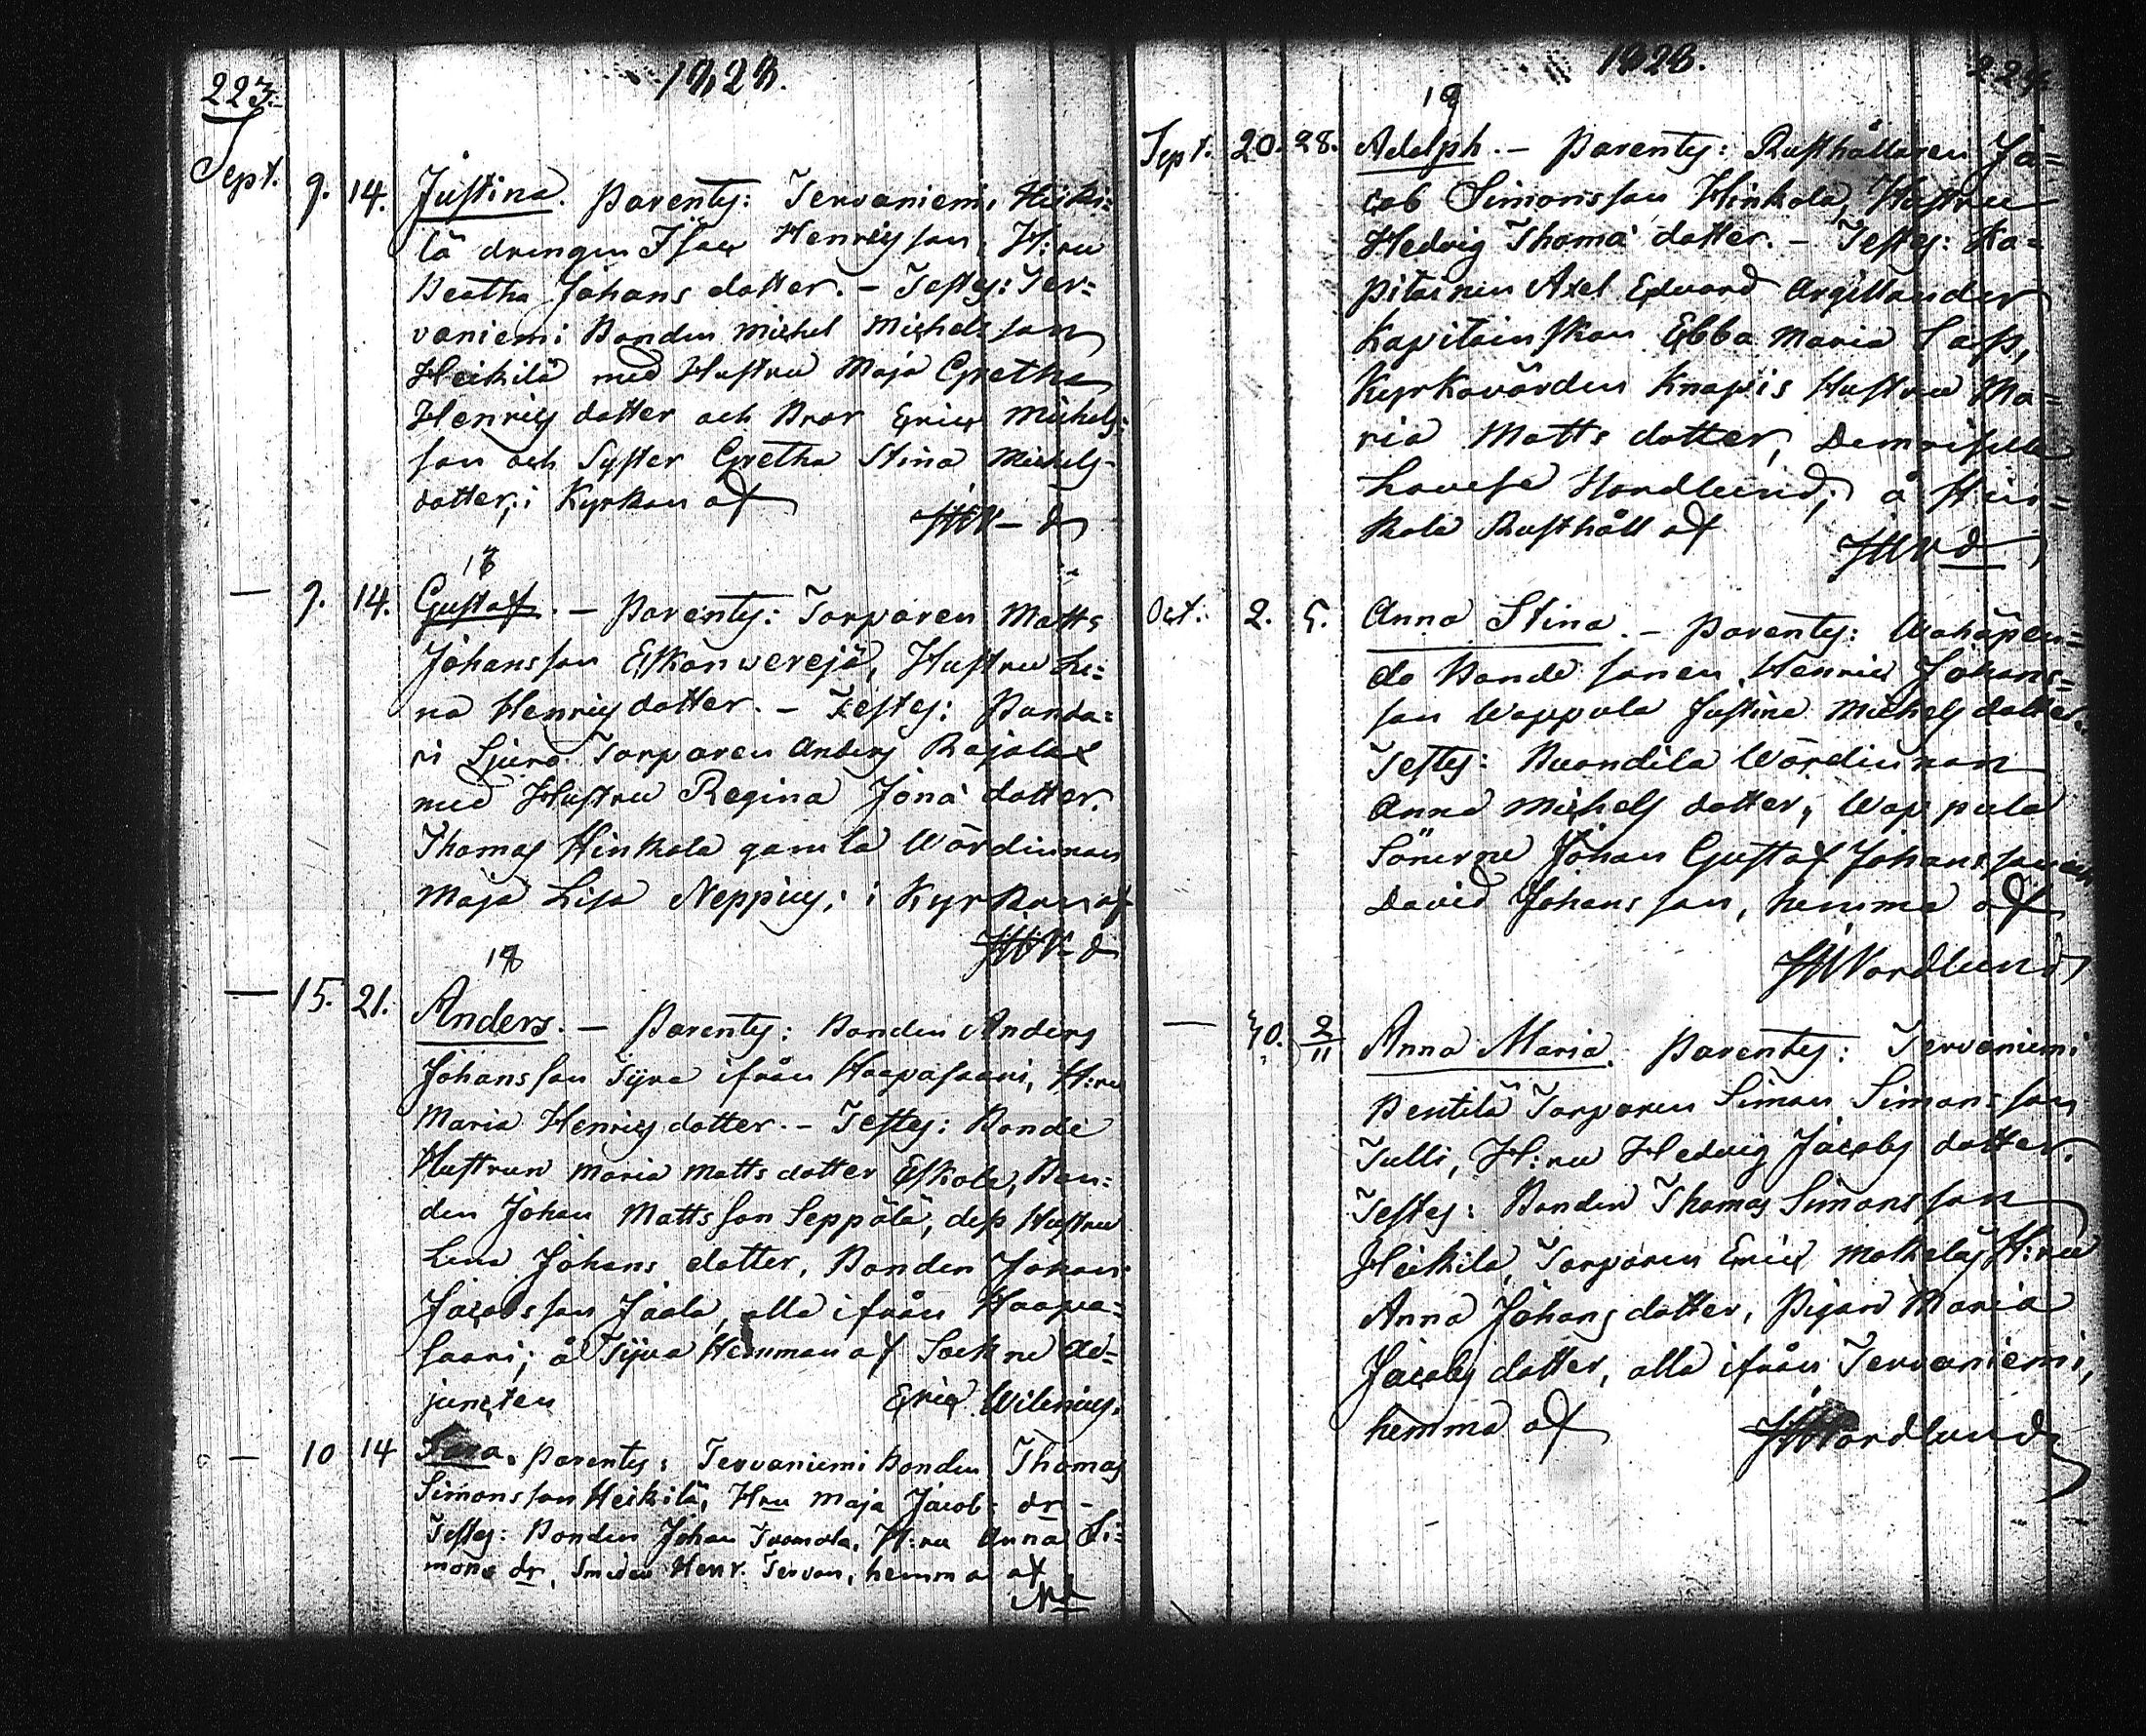 223.
1828.
Sept. 9. 14. Justina. Parentes: Tervaniemi Heiki=
lä drengen Isac Henricsson, H:ru
Beatha Johans dotter. – Testes: Ter=
vaniemi Bonden Michel Michelsson
Heikilä med Hustru Maja Gretha
Henrics dotter och Bror Eric Michels=
son och Syster Gretha Stina Michels-
dotter; i Kyrkan af
— 9. 14. Gustaf. – Parentes: Torparen Matts
Johansson Eskonwerejä, Hustru Le=
na Henrics dotter. – Testes:
Torparen Anders Rajala
med Hustru Regina Jonæ dotter.
Thomas Hinkala gamla Wärdinnan
Maja Lisa Neppius; i Kyrkan af
18
— 15. 21. Anders. – Parentes: Bonden Anders
Johansson Tijra ifrån Haapasaari, H:ru
Maria Henrics dotter. – Testes: Bonde
Hustrun Maria Matts dotter Eskola, Bon=
den Johan Mattsson Seppälä, dess Hustru
Lena Johans dotter, Bonden Johan
Jacobsson Jaala, alla ifrån Haapa=
saari; å Tijra Hemman af Sockne Ad=
juncten Eric Wilenius.
— 10 14 Parentes: Tervaniemi Bonden Thomas
Simonsson Heikilä, Hru Maja Jacobs dr –
Testes: Bonden Johan Tuomola, H:ru Anna Si=
mons dr, Smeden Henr. Tervan, hemma af
1828.
224.
19
Sept. 20. 28. Adolph. – Parentes: Rusthållaren Ja=
cob Simonsson Hinkala, Hustru
Hedvig Thomæ dotter. – Testes: Ka=
pitainen Axel Edvard Argillander
Kapitainskan Ebba Maria Sass,
Kyrkovärden Knapis Hustru Ma=
ria Matts dotter, Demoiselle
Lovisa Nordlund; å Hin=
kala Rusthåll af
Oct. 2. 5. Anna Stina. – Parentes: Wahåpen=
do Bonde sonen Henric Johans=
son Wappula Justina Michels dotter.
Testes: Wärdinnan
Anna Michels dotter, Wappula
Sönerne Johan Gustaf Johansson och
David Johansson, hemma af
JHNordlund
— 30. 2/11 Anna Maria. Parentes: Tervaniemi
Pentilä Torparen Simon Simonsson
Tulli, H:ru Hedvig Jacobs dotter.
Testes: Bonden Thomas Simonsson
Heikila, Torparen Eric Matkelas H:ru
Anna Johans dotter, Pigan Maria
Jacobs dotter, alla ifrån Tervaniemi,
hemma af JHNordlund